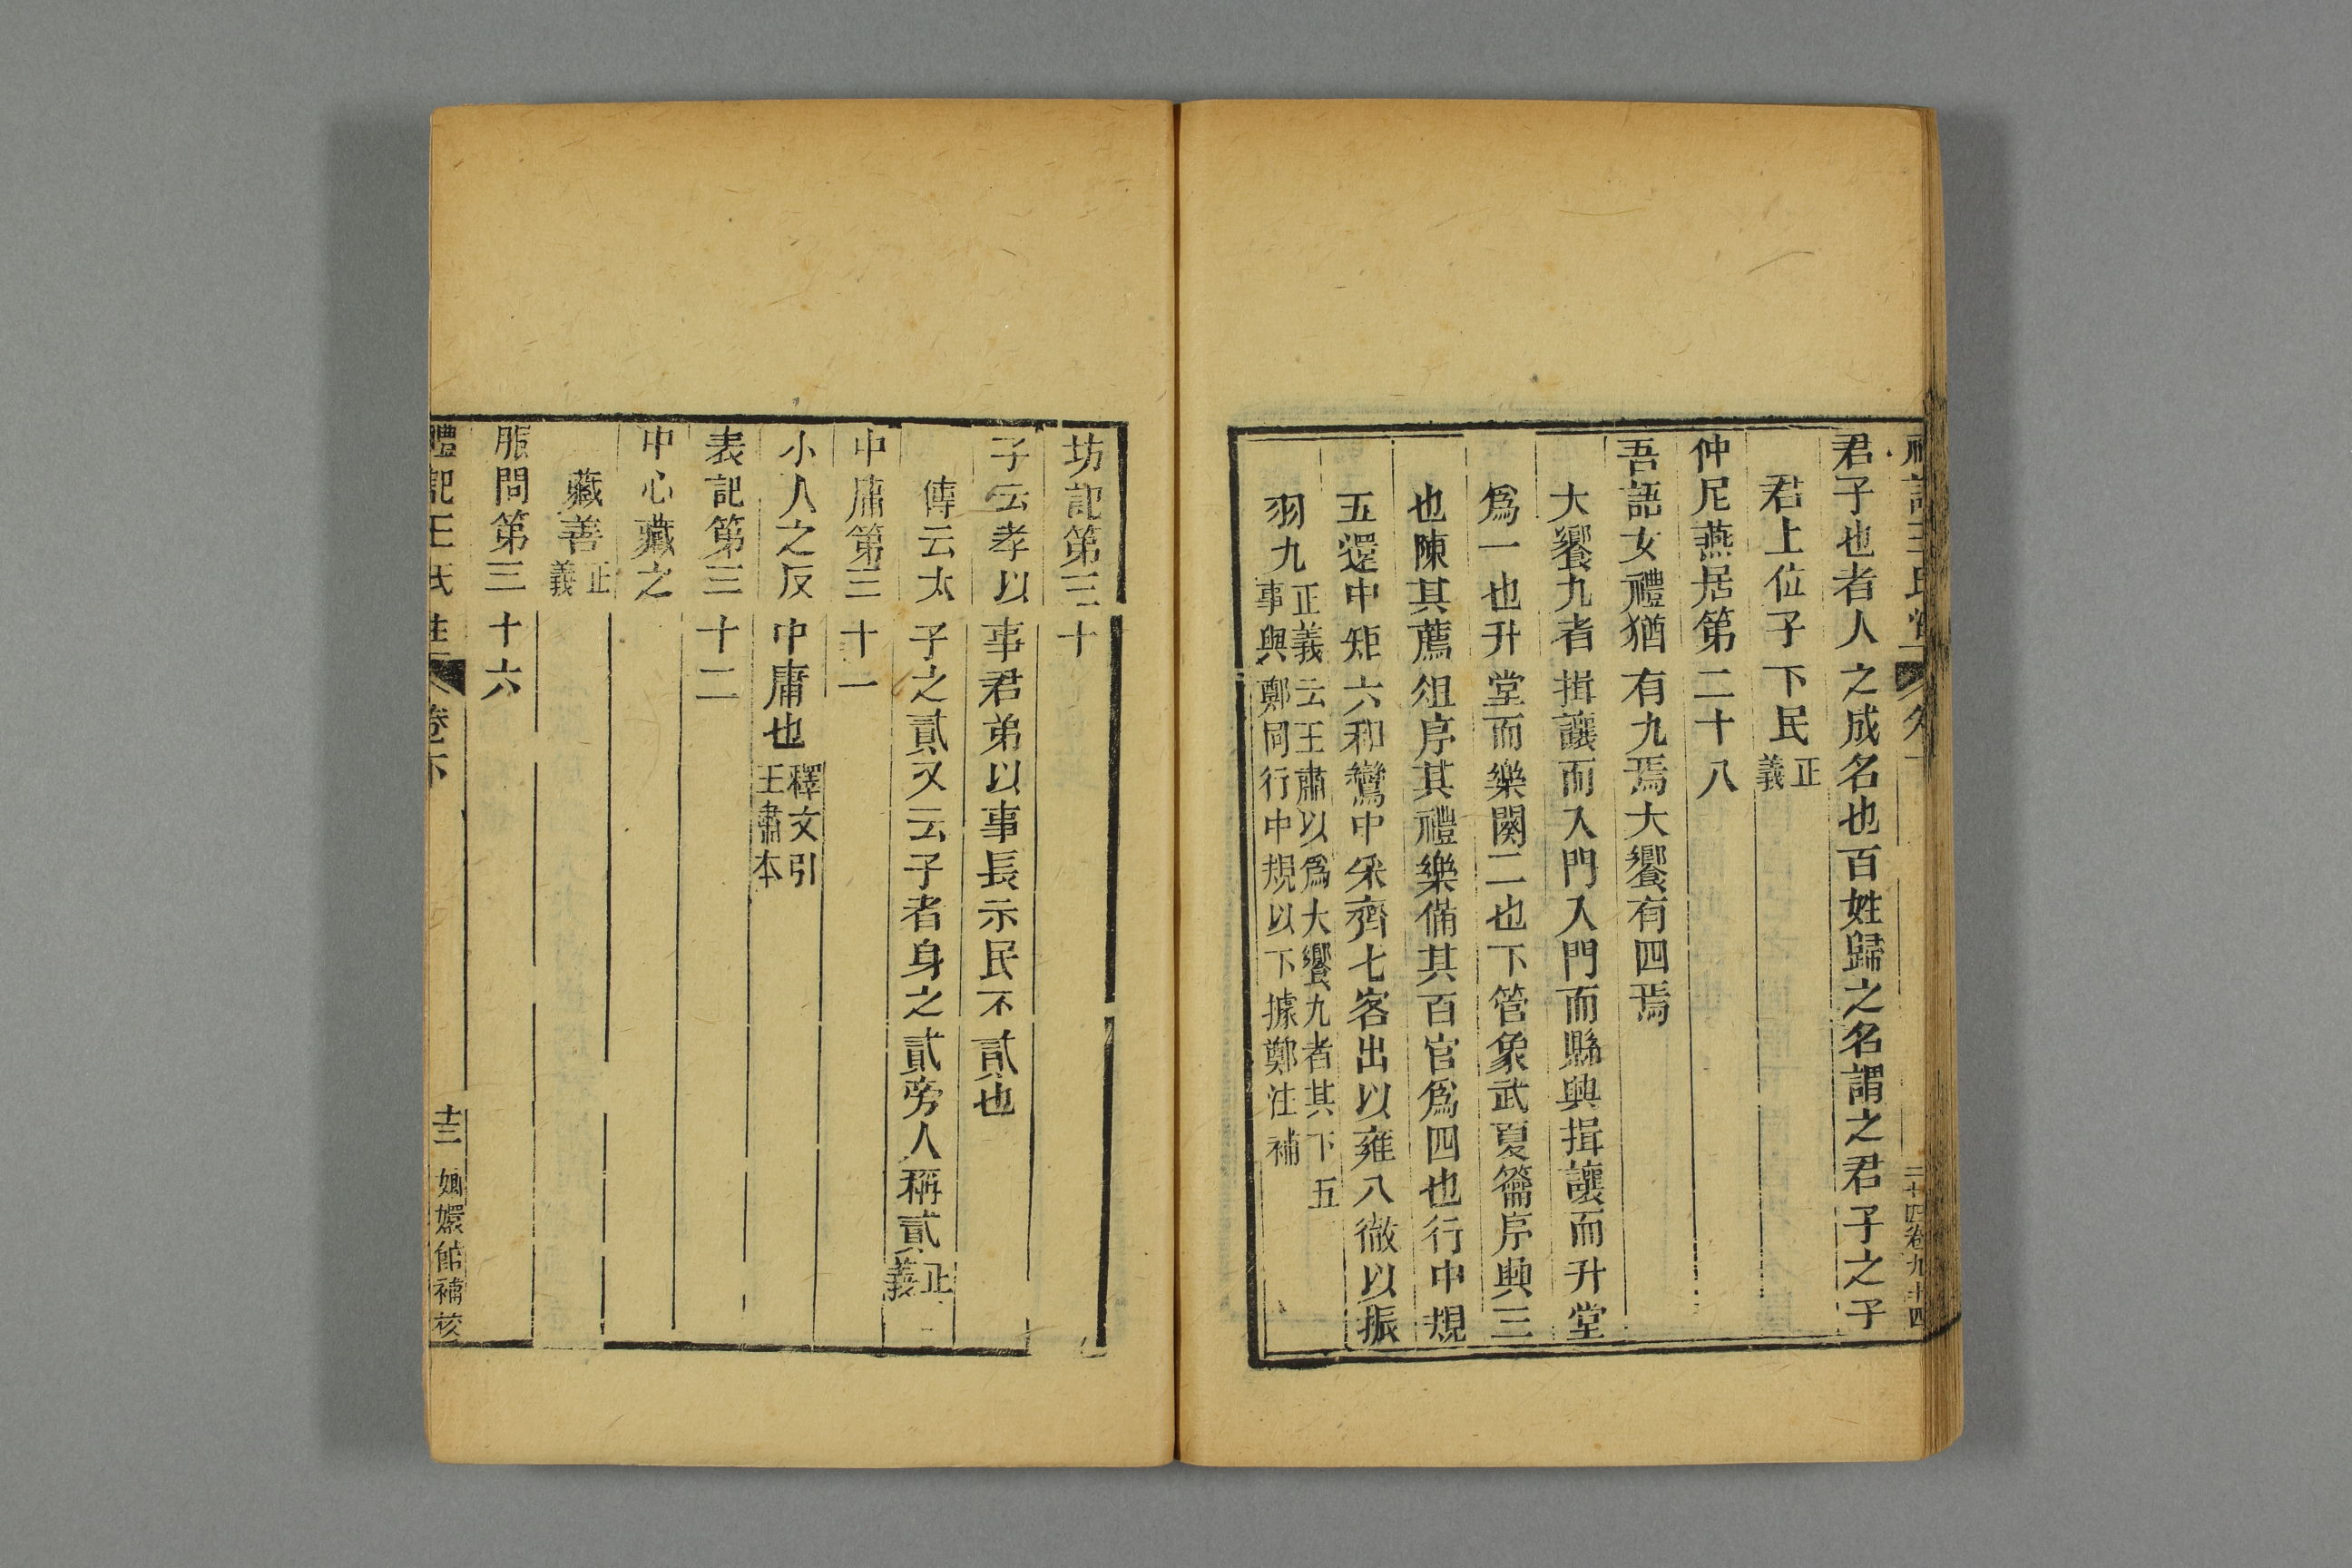 君子也者人之成名也百姓歸之名謂之君子之子
君上位子下民正義
仲尼燕居第二十八
吾語女禮猶有九焉大饗有四焉
大饗九者揖讓而入門入門而縣興揖讓而升堂
爲一也升堂而樂闋二也下管象武夏籥序興三
也陳其薦俎序其禮樂備其百官爲四也行中規
五還中矩六和鸞中采齊七客出以雍八徹以振
羽九正義云王肅以爲大饗九者其下五
事與鄭同行中規以下據鄭注補
坊記第三十
子云孝以事君弟以事長示民不貳也
傳云太子之貳又云子者身之貳旁人稱貳正義
中庸第三十一
小人之反中庸也釋文引
王肅本
表記第三十二
中心藏之
藏善正義
服問第三十六
禮記王氏注 卷下 十三 嫏嬛館補校